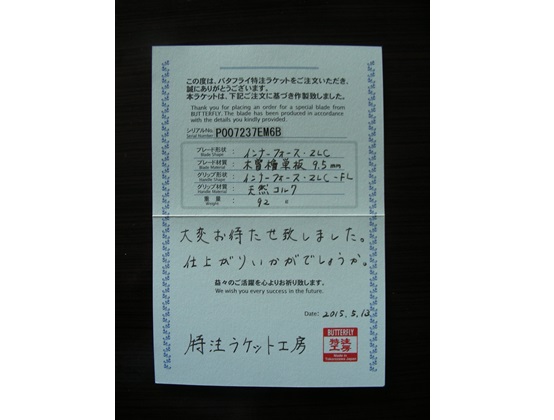 この度は、バタフライ特注ラケットをご注文いただき、
誠にありがとうございます。
本ラケットは、下記ご注文に基づき作製致しました。
Thank you for placing an order for a special blade from
BUTTERFLY. The blade has been produced in accordance
with the details you kindly provided.
シリアルNo. P007237EM6B
Serial Number
ブレード形状 : インナーフォース・ZLC
Blade Shape
ブレード材質 : 木曽檜単板 9.5mm
Blade Material
グリップ形状 : インナーフォース・ZLC-FL
Handle Shape
グリップ材質 : 天然コルク
Handle Material
重量 : 92 g
Weight
大変お待たせ致しました。
仕上がりいかがでしょうか。
益々のご活躍を心よりお祈り致します。
We wish you every success in the future.
Date: 2015.5.13
特注ラケット工房
BUTTERFLY
特注
工房
Made in
Tokorozawa Japan